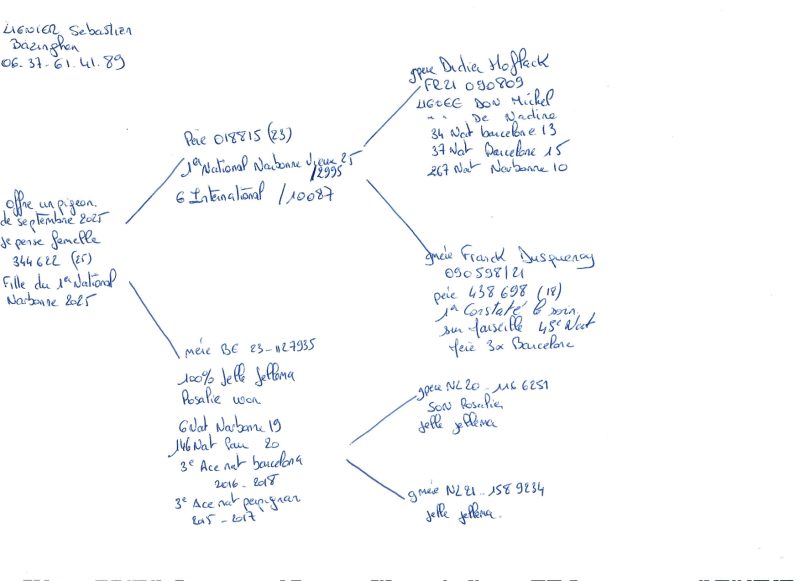 LIENIER Sébastien
Bazinghen
06.37.61.41.89
Offre un pigeon.
de septembre 2025
Je pense femelle
344622 (25)
Fille du 1er National
Narbonne 2025
Père 018815 (23)
1er National Narbonne Vieux 25
/2995
6 International /10087
mère BE 23-1127935
100% Jelle Jellema
Rosalie won
6 Nat Narbonne 19
146 Nat Pau 20
3e Ace nat barcelona
2016-2018
3e Ace nat perpignan
2015-2017
gpère Didier Hoflack
FR21 090809
DON Michel
" " De Nadine
34 Nat barcelone 13
37 Nat Barcelone 15
267 Nat Narbonne 10
gmère Franck Dusquenoy
090598/21
père 438698 (18)
1er Constaté le soir
sur Marseille 45e Nat
Père 3x Barcelone
gpère NL20-116 6251
SON Rosalie
Jelle Jellema
gmère NL21-158 9234
Jelle Jellema.